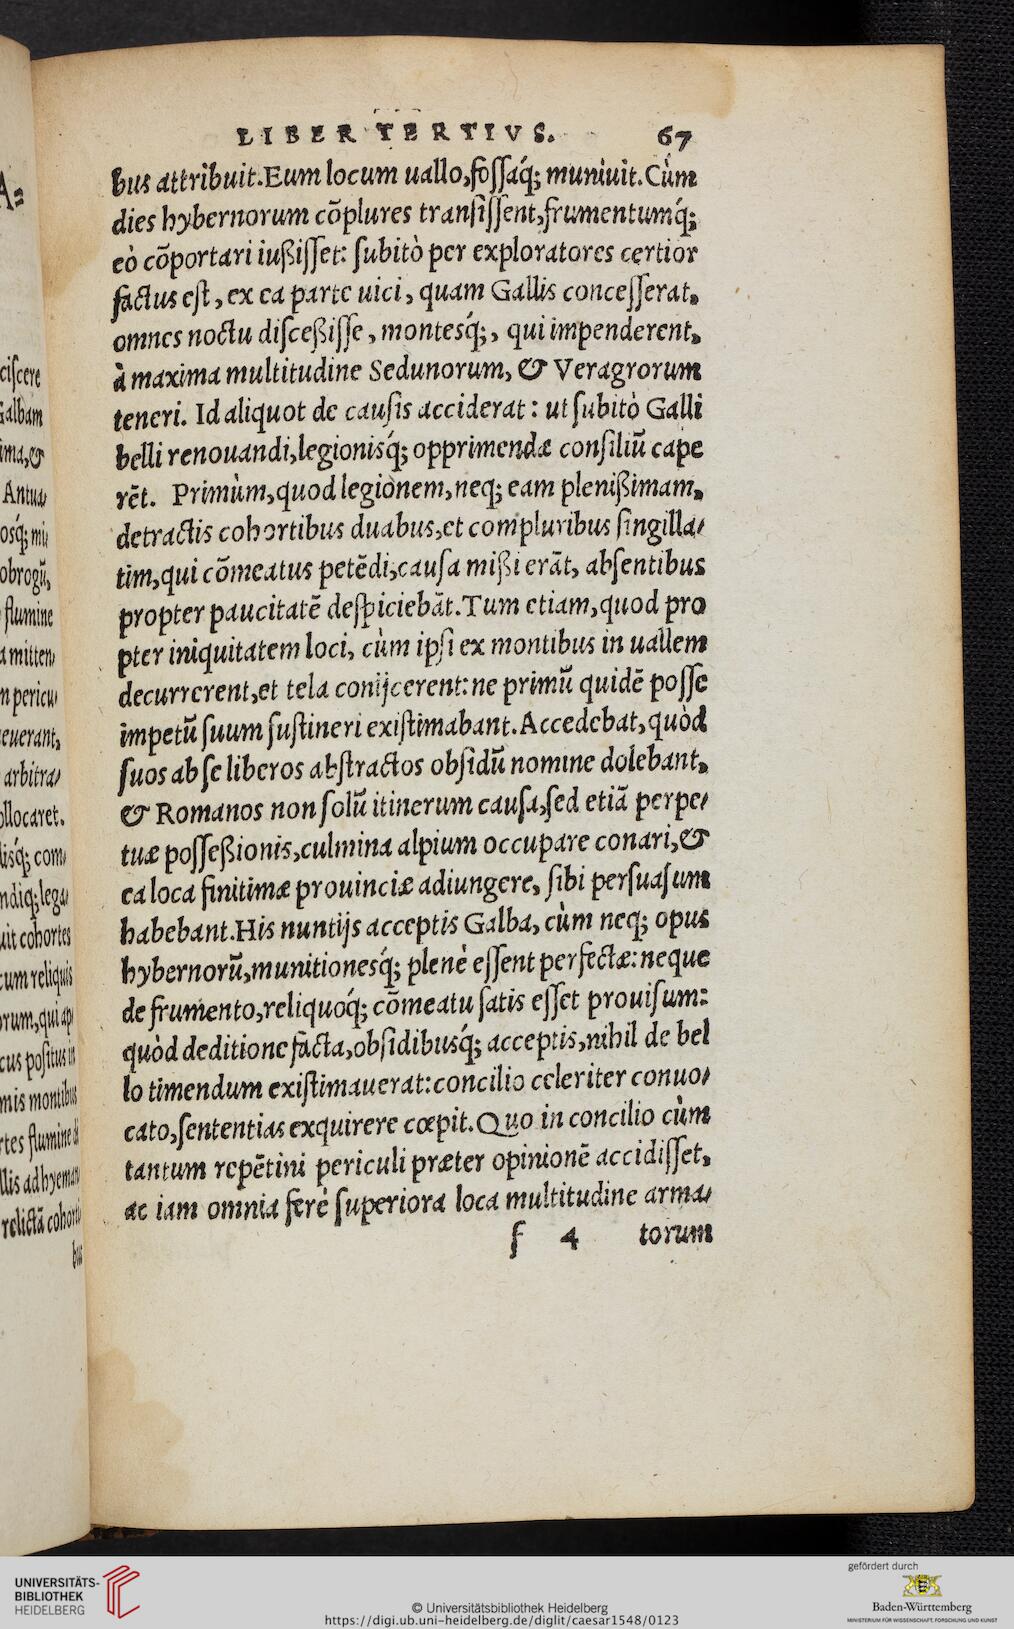 LIBER TERTIVS. 67
bus attribuit.Eum locum uallo,fossaq́; muniuit.Cùm
dies hybernorum cõplures transissent,frumentumq́;
eò cõportari iußisset: subitò per exploratores certior
factus est, ex ea parte uici, quam Gallis concesserat,
omnes noctu disceßisse, montesq́;, qui impenderent,
à maxima multitudine Sedunorum, & Veragrorum
teneri. Id aliquot de causis acciderat: ut subitò Galli
belli renouandi,legionisq́; opprimendæ consiliũ cape
rẽt. Primùm,quod legionem,neq; eam plenißimam,
detractis cohortibus duabus,et compluribus singilla/
tim,qui cõmeatus petẽdi,causa mißi erãt, absentibus
propter paucitatẽ despiciebãt.Tum etiam,quod pro
pter iniquitatem loci, cùm ipsi ex montibus in uallem
decurrerent,et tela conijcerent:ne primũ quidẽ posse
impetũ suum sustineri existimabant.Accedebat,quòd
suos ab se liberos abstractos obsidũ nomine dolebant,
& Romanos non solũ itinerum causa,sed etiã perpe/
tuæ posseßionis,culmina alpium occupare conari,&
ea loca finitimæ prouinciæ adiungere, sibi persuasum
habebant.His nuntijs acceptis Galba, cùm neq; opus
hybernorũ,munitionesq́; plenè essent perfectæ:neque
de frumento,reliquoq́; cõmeatu satis esset prouisum:
quòd deditione facta,obsidibusq́; acceptis,nihil de bel
lo timendum existimauerat:concilio celeriter conuo/
cato,sententias exquirere cœpit.Quo in concilio cùm
tantum repẽtini periculi præter opinionẽ accidisset,
ac iam omnia ferè superiora loca multitudine arma/
f 4 torum
A=
ciscere
Galbam
ima,&
Antua/
osq́; mu
obrogũ,
flumine
a mitten/
n pericu/
euerant,
arbitra/
ollocaret.
lisq́; com/
ndiq;lega/
uit cohortes
cum reliquis
orum,qui ap/
cus positus in
mis montibus
rtes flumine di
llis ad hyeman/
relictã cohorti
bus
UNIVERSITÄTS-
BIBLIOTHEK
HEIDELBERG
© Universitätsbibliothek Heidelberg
https://digi.ub.uni-heidelberg.de/diglit/caesar1548/0123
gefördert durch
Baden-Württemberg
MINISTERIUM FÜR WISSENSCHAFT, FORSCHUNG UND KUNST